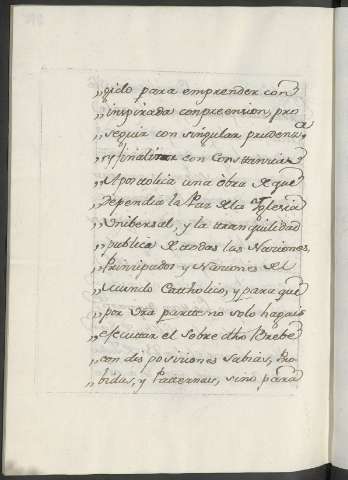 „gido para emprender con
„inspirada conpreension, pro
„seguir con singular prudenca
„y finalizar con Constancia
„Apostolica una obra de que
„dependia la Paz de la Iglecia
„Unibersal, y la tranquilidad
„publica de todas las Naciones,
„Principados y Naciones del
„Mundo Cattholico, y para que
„por Vra parte no solo hagais
„efecuttar el Sobre dho Brebe
„con dis posiciones Sabias, Pro
„bidas, y Patternas, sino para